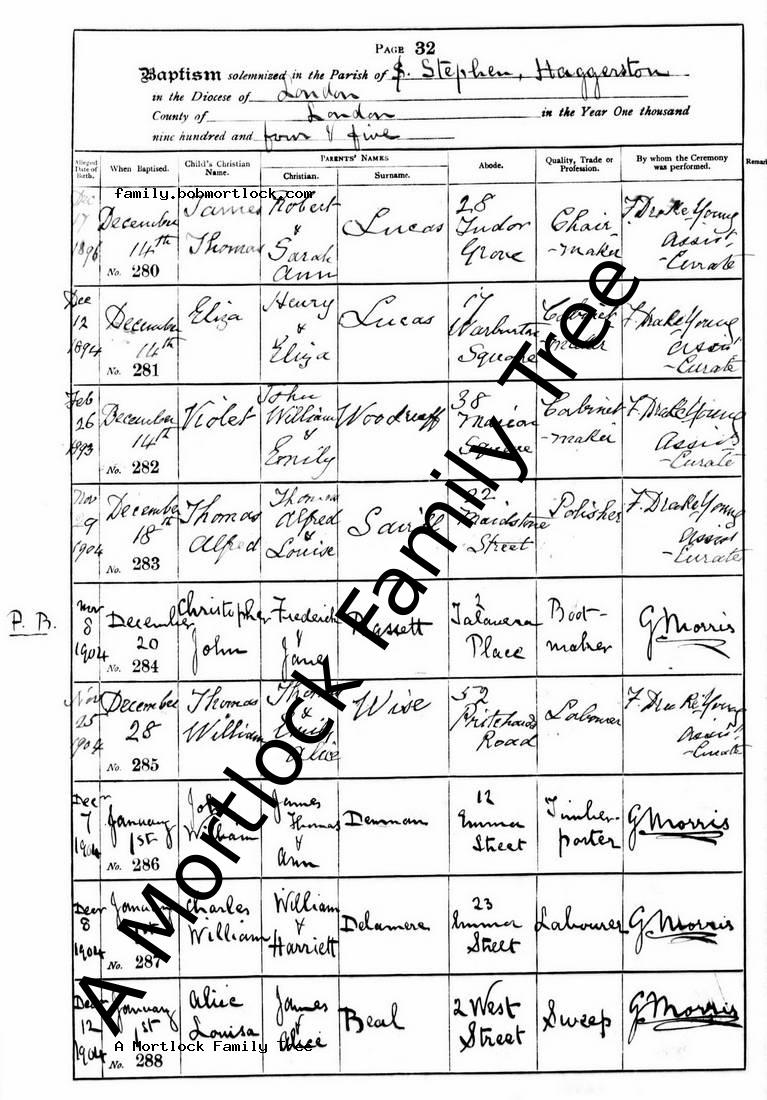 PAGE 32
Baptism solemnized in the Parish of S. Stephen, Haggerston
in the Diocese of London
County of London in the Year One thousand
nine hundred and four & five
Alleged Date of Birth. When Baptised. Child's Christian Name. PARENTS' NAMES Christian. Surname. Abode. Quality, Trade or Profession. By whom the Ceremony was performed. Remar
family.bobmortlock.com
Dec 17 1896 December 14th No. 280 James Thomas Robert & Sarah Ann Lucas 28 Tudor Grove Chair-maker F. Drake Young Assist. Curate
Dec 12 1894 December 14th No. 281 Eliza Henry & Eliza Lucas 17 Warburton Square Cabinet maker F. Drake Young Assist Curate
Feb 26 1893 December 14th No. 282 Violet John William & Emily Woodruff 38 Square Cabinet-maker F. Drake Young Assist Curate
Nov 9 1904 December 18th No. 283 Thomas Alfred Thomas Alfred & Louise 22 Maidstone Street Polisher F. Drake Young Assist Curate
P. B.
Nov 8 1904 December 20 No. 284 Christopher John Frederick & Jane Massett 2 Talavera Place Boot-maker G. Morris
Nov 25 1904 December 28 No. 285 Thomas William Thomas & Emily Alice Wise 52 Pritchards Road Labourer F. Drake Young Assist. Curate
Decr 7 1904 January 1st No. 286 John William James Thomas & Ann Denman 12 Emma Street Timber-porter G. Morris
Decr 8 1904 January 1st No. 287 Charles William William & Harriett Delamere 23 Emma Street Labourer G. Morris
Decr 12 1904 January 1st No. 288 Alice Louisa James & Alice Beal 2 West Street Sweep G. Morris
A Mortlock Family Tree
A Mortlock Family Tree